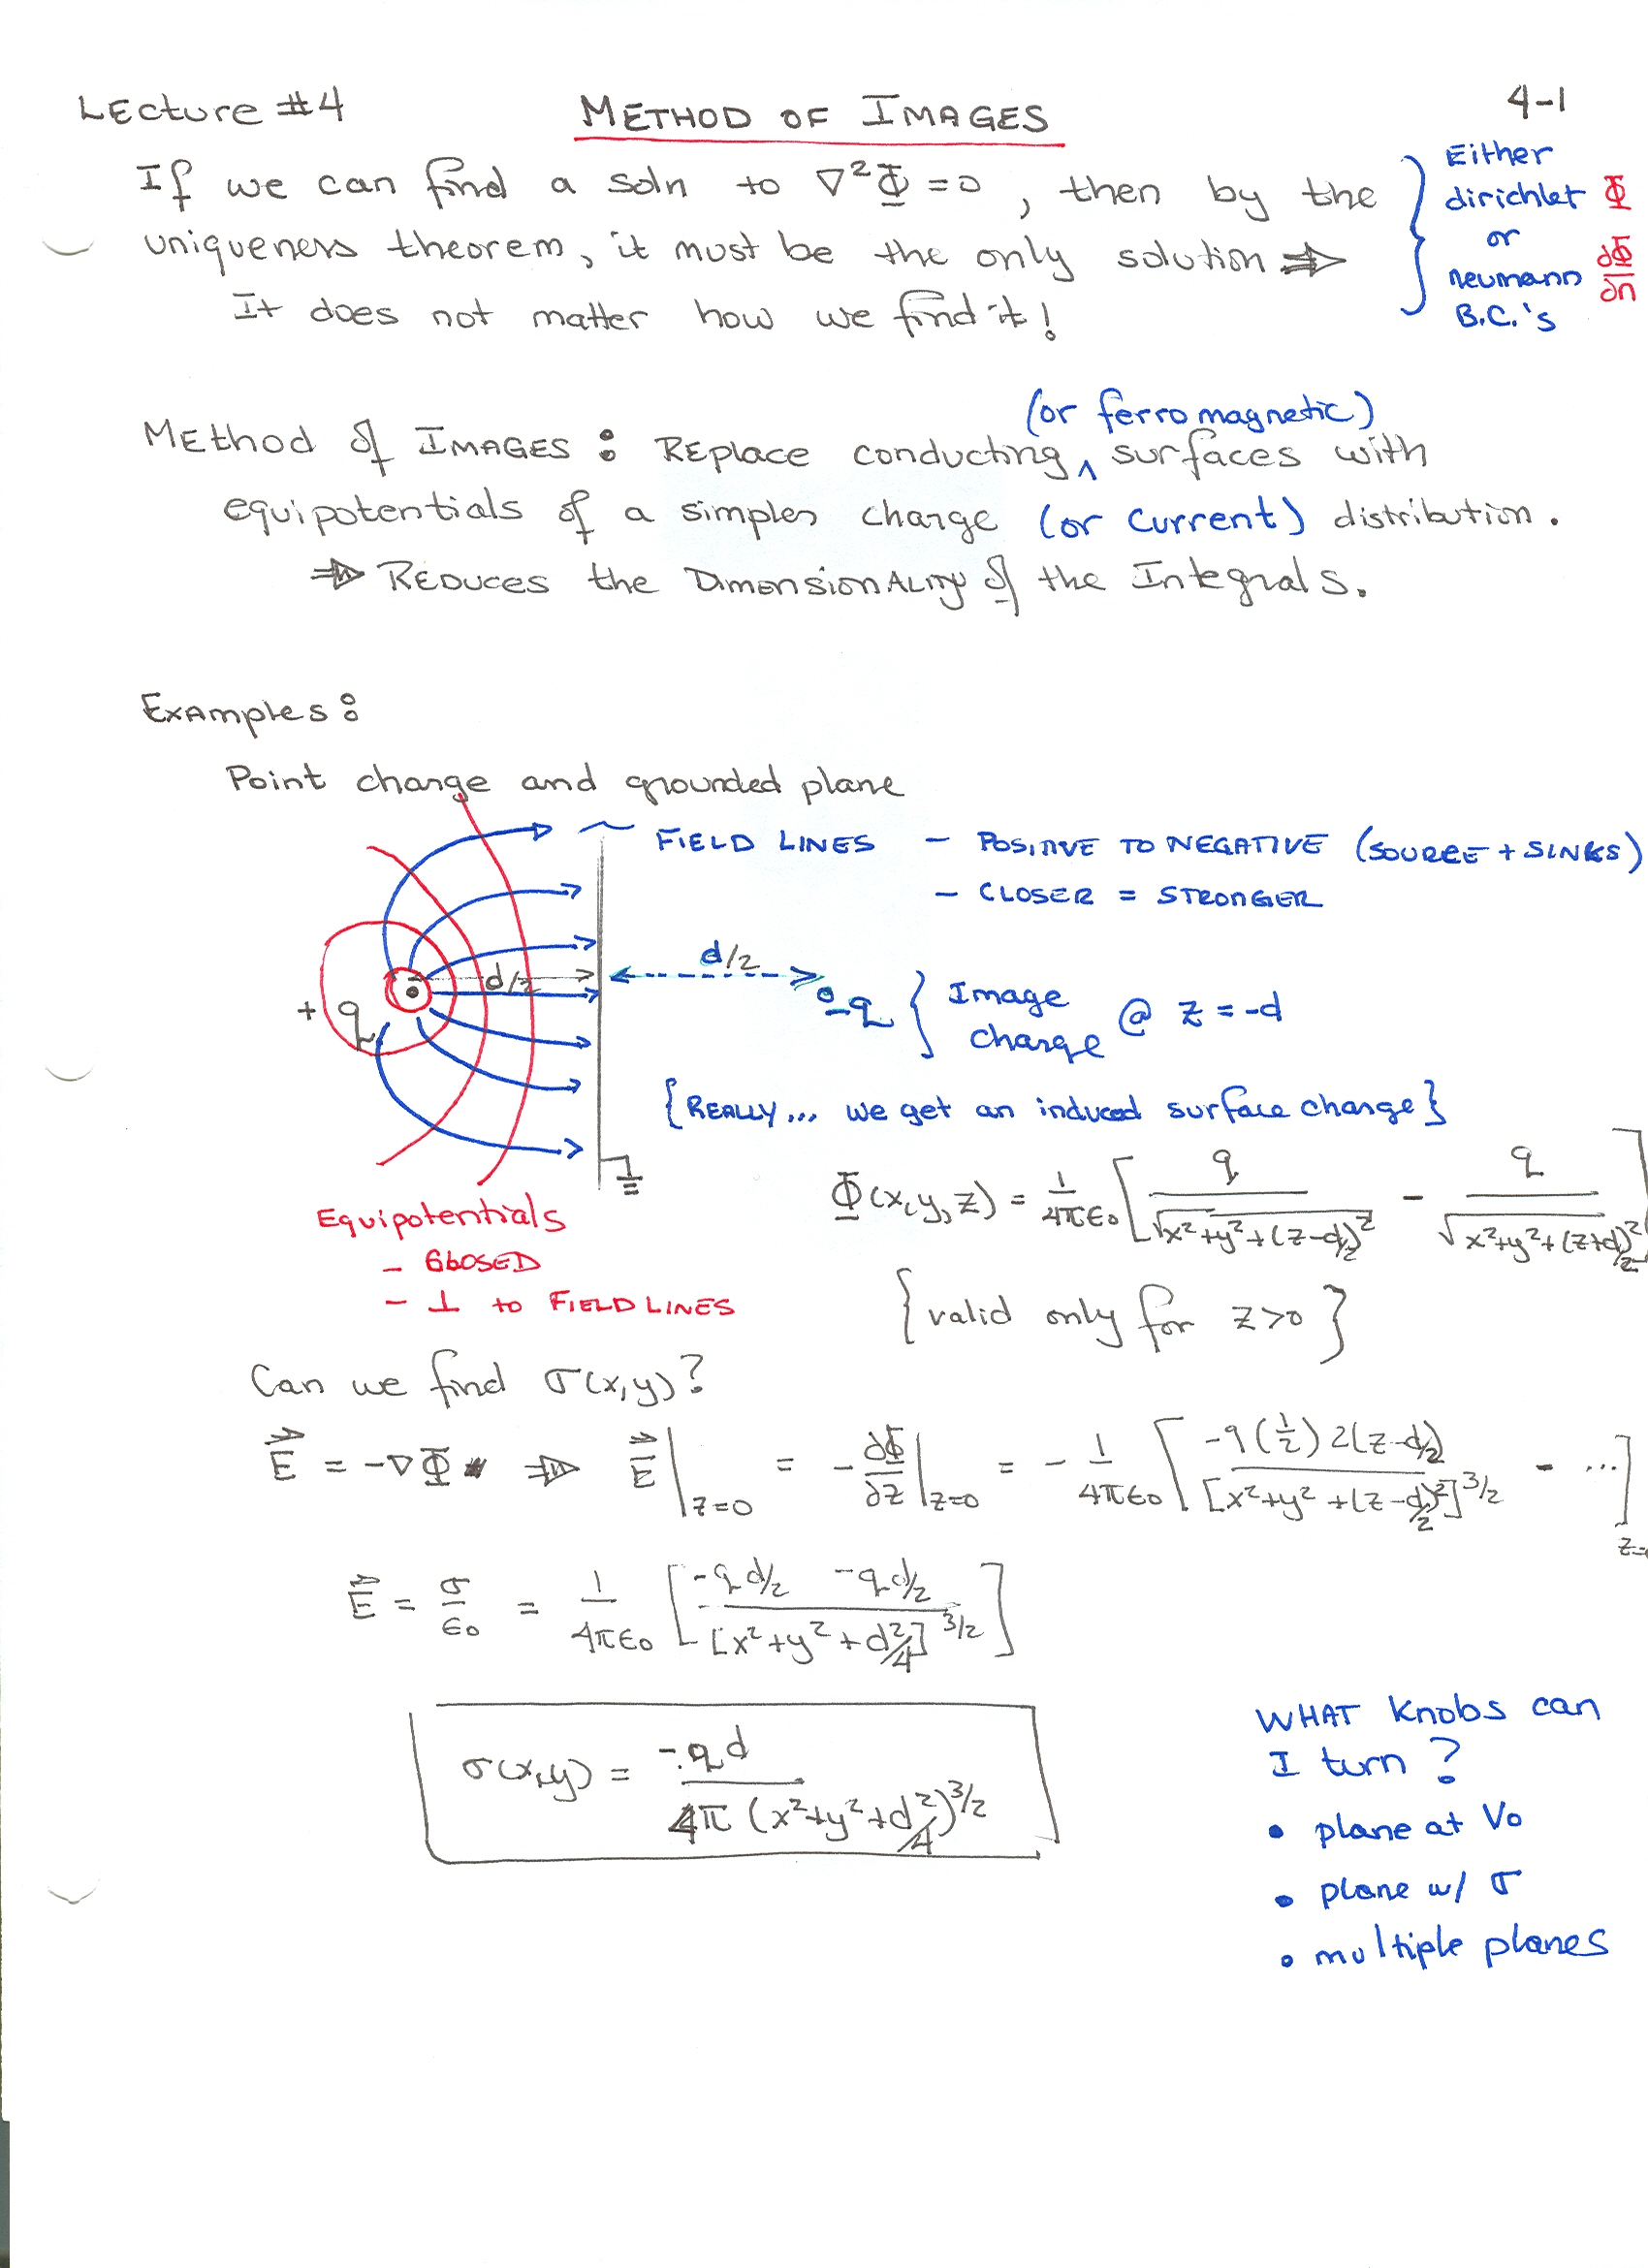 Lecture #4
METHOD OF IMAGES
4-1
If we can find a soln to ∇²Φ = 0, then by the
uniqueness theorem, it must be the only solution ⇒
It does not matter how we find it!
Either
dirichlet Φ
or
neumann ∂Φ/∂n
B.C.'s
(or ferromagnetic)
Method of IMAGES : REPLACE conducting ^ surfaces with
equipotentials of a simpler charge (or current) distribution.
⇒ REDUCES the DimensionALITY of the Integrals.
Examples:
Point charge and grounded plane
FIELD LINES - POSITIVE TO NEGATIVE (SOURCE + SINKS)
- CLOSER = STRONGER
d/2
d/2
+q
-q { Image charge @ z = -d
{REALLY... we get an induced surface charge}
Φ(x,y,z) = 1/4πε₀ [ q/√(x²+y²+(z-d/2)²) - q/√(x²+y²+(z+d/2)²) ]
Equipotentials
- CLOSED
- ⊥ to FIELD LINES
{valid only for z>0}
Can we find σ(x,y)?
E⃗ = -∇Φ ⇒ E⃗|z=0 = -∂Φ/∂z|z=0 = - 1/4πε₀ [ -q(1/2)2(z-d/2)/[x²+y²+(z-d/2)²]^3/2 - ... ]z=
E⃗ = σ/ε₀ = 1/4πε₀ [ -qd/2 -qd/2 / [x²+y²+d²/4]^3/2 ]
σ(x,y) = -qd / 4π(x²+y²+d²/4)^3/2
WHAT knobs can
I turn?
• plane at V₀
• plane w/ σ
• multiple planes